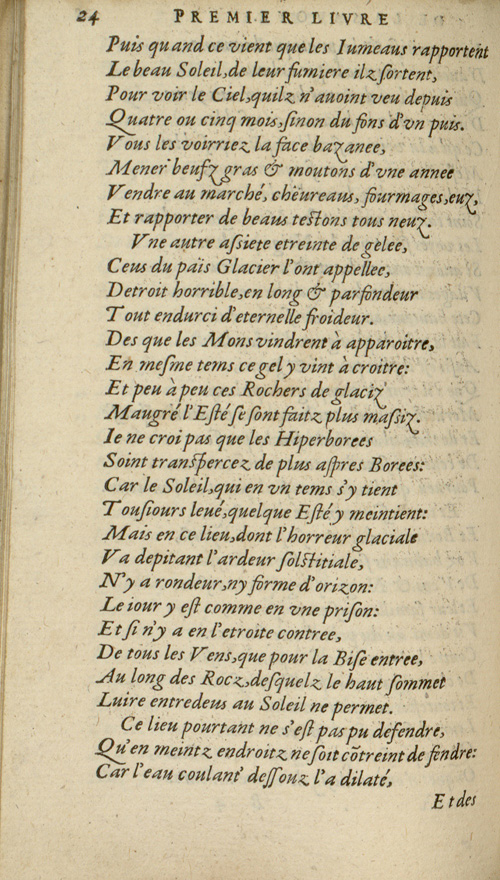 24 PREMIER LIVRE
Puis quand ce vient que les Iumeaus rapportent
Le beau Soleil,de leur fumiere ilz sortent,
Pour voir le Ciel,quilz n'auoint veu depuis
Quatre ou cinq mois,sinon du fons d'vn puis.
Vous les voirriez la face bazanee,
Mener beufz gras & moutons d'vne annee
Vendre au marché, cheureaus, fourmages,euz,
Et rapporter de beaus testons tous neuz.
Vne autre assiete etreinte de gelee,
Ceus du païs Glacier l'ont appellee,
Detroit horrible,en long & parfondeur
Tout endurci d'eternelle froideur.
Des que les Mons vindrent à apparoitre,
En mesme tems ce gel y vint à croitre:
Et peu à peu ces Rochers de glaciz
Maugré l'Esté se sont faitz plus massiz.
Ie ne croi pas que les Hiperborees
Soint transpercez de plus aspres Borees:
Car le Soleil,qui en vn tems s'y tient
Tousiours leué,quelque Esté y meintient:
Mais en ce lieu,dont l'horreur glaciale
Va depitant l'ardeur solstitiale,
N'y a rondeur,ny forme d'orizon:
Le iour y est comme en vne prison:
Et si n'y a en l'etroite contree,
De tous les Vens,que pour la Bise entree,
Au long des Rocz,desquelz le haut sommet
Luire entredeus au Soleil ne permet.
Ce lieu pourtant ne s'est pas pu defendre,
Qu'en meintz endroitz ne soit cõtreint de fendre:
Car l'eau coulant dessouz l'a dilaté,
Et des